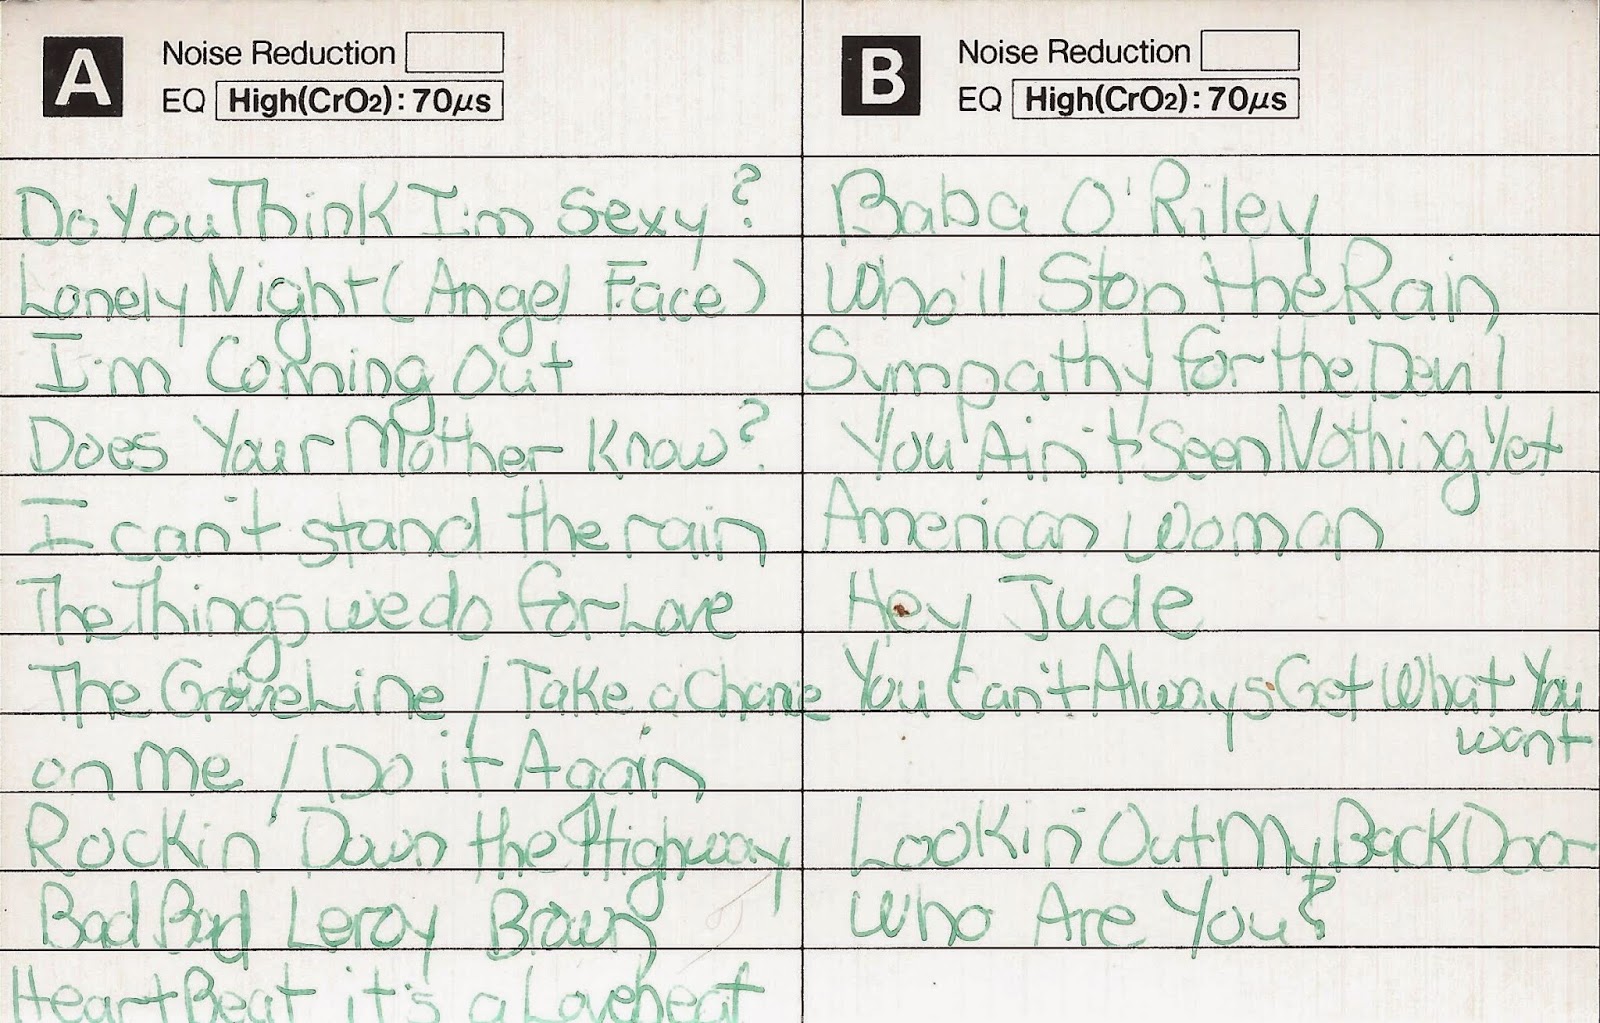 A Noise Reduction
EQ High(CrO2): 70μs
Do You Think I'm Sexy?
Lonely Night (Angel Face)
I'm Coming Out
Does Your Mother Know?
I can't stand the rain
The Things we do for Love
The Groove Line / Take a Chance
on me / Do it Again
Rockin' Down the Highway
Bad Bad Leroy Brown
HeartBeat it's a Lovebeat
B Noise Reduction
EQ High(CrO2): 70μs
Baba O'Riley
Who'll Stop the Rain
Sympathy for the Devil
You Ain't Seen Nothing Yet
American Woman
Hey Jude
You Can't Always Get What You
want
Lookin' Out My Back Door
Who Are You?